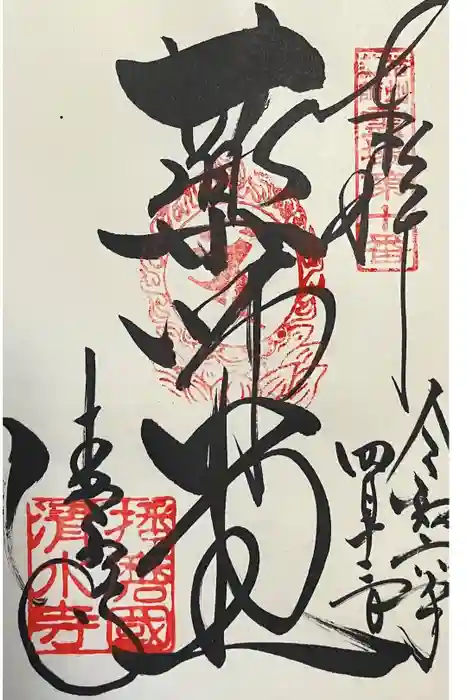 奉拝
令和六年
四月二日
薬師堂
清水寺
播磨國
清水寺